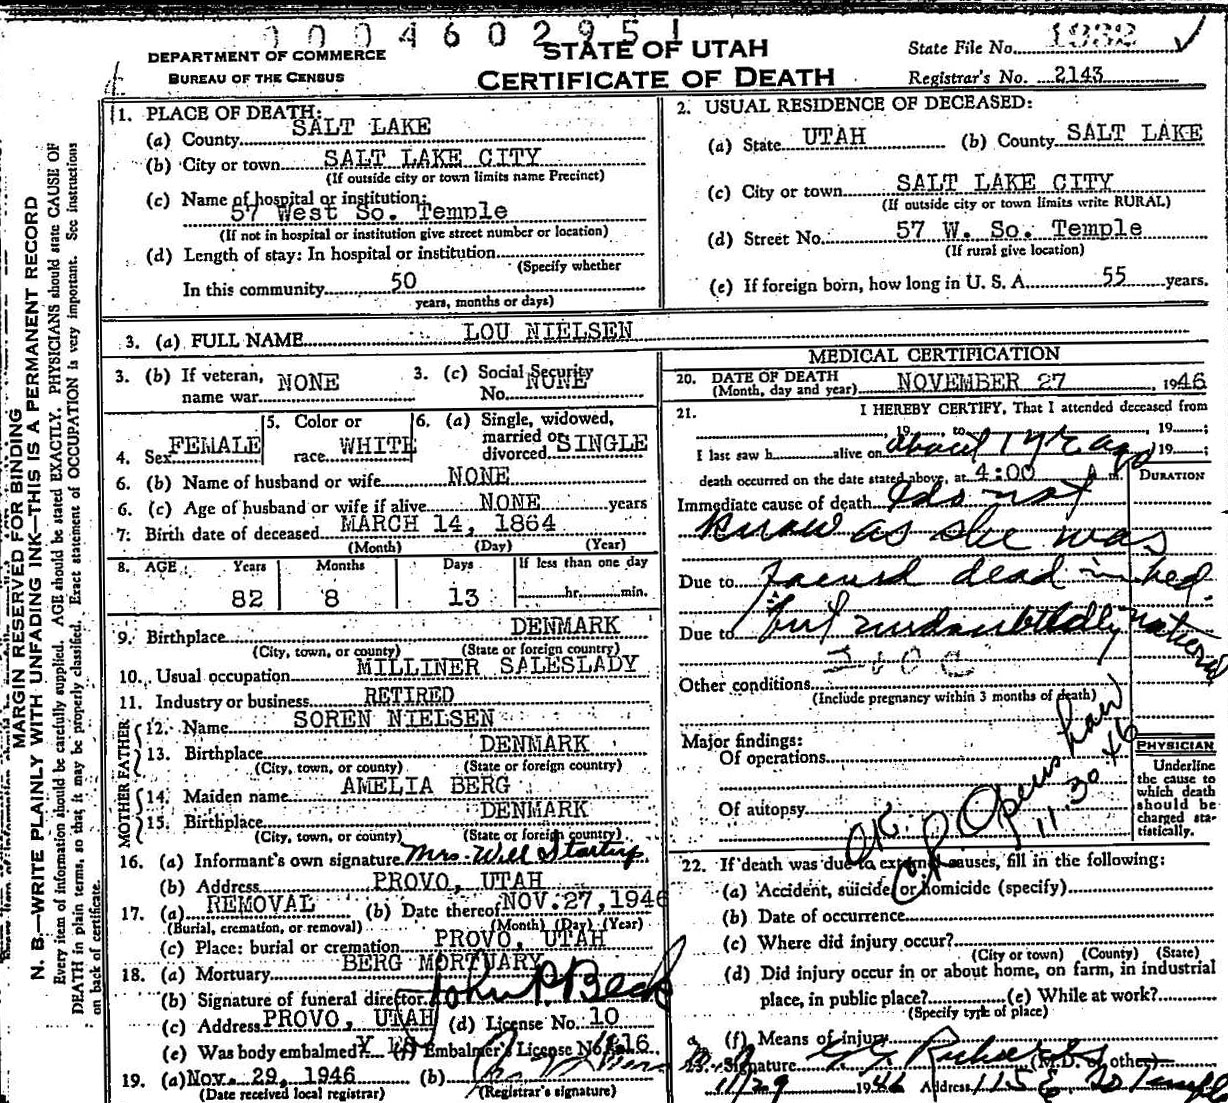 0004602951
DEPARTMENT OF COMMERCE
BUREAU OF THE CENSUS
STATE OF UTAH
CERTIFICATE OF DEATH
State File No.
Registrar's No. 2143
MARGIN RESERVED FOR BINDING
N. B.—WRITE PLAINLY WITH UNFADING INK—THIS IS A PERMANENT RECORD
Every item of information should be carefully supplied. AGE should be stated EXACTLY. PHYSICIANS should state CAUSE OF
DEATH in plain terms, so that it may be properly classified. Exact statement of OCCUPATION is very important. See instructions
on back of certificate.
1. PLACE OF DEATH:
(a) County SALT LAKE
(b) City or town SALT LAKE CITY
(If outside city or town limits name Precinct)
(c) Name of hospital or institution:
57 West So. Temple
(If not in hospital or institution give street number or location)
(d) Length of stay: In hospital or institution
(Specify whether
In this community 50
years, months or days)
2. USUAL RESIDENCE OF DECEASED:
(a) State UTAH (b) County SALT LAKE
(c) City or town SALT LAKE CITY
(If outside city or town limits write RURAL)
(d) Street No. 57 W. So. Temple
(If rural give location)
(e) If foreign born, how long in U. S. A. 55 years.
3. (a) FULL NAME LOU NIELSEN
3. (b) If veteran, name war NONE
3. (c) Social Security No. NONE
4. Sex FEMALE
5. Color or race WHITE
6. (a) Single, widowed, married or divorced SINGLE
6. (b) Name of husband or wife NONE
6. (c) Age of husband or wife if alive NONE years
7. Birth date of deceased MARCH 14, 1864
(Month) (Day) (Year)
8. AGE Years Months Days If less than one day
82 8 13 hr. min.
9. Birthplace DENMARK
(City, town, or county) (State or foreign country)
10. Usual occupation MILLINER SALESLADY
11. Industry or business RETIRED
FATHER
12. Name SOREN NIELSEN
13. Birthplace DENMARK
(City, town, or county) (State or foreign country)
MOTHER
14. Maiden name AMELIA BERG
15. Birthplace DENMARK
(City, town, or county) (State or foreign country)
16. (a) Informant's own signature Mrs. Will Startup
(b) Address PROVO, UTAH
17. (a) REMOVAL (b) Date thereof NOV. 27, 1946
(Burial, cremation, or removal) (Month) (Day) (Year)
(c) Place: burial or cremation PROVO, UTAH
18. (a) Mortuary BERG MORTUARY
(b) Signature of funeral director John P. Beck
(c) Address PROVO, UTAH (d) License No. 10
(e) Was body embalmed? YES (f) Embalmer's License No.
19. (a) Nov. 29, 1946 (b)
(Date received local registrar) (Registrar's signature)
MEDICAL CERTIFICATION
20. DATE OF DEATH
(Month, day and year) NOVEMBER 27, 1946
21. I HEREBY CERTIFY, That I attended deceased from
19 , to 19 ;
I last saw h alive on about 1 yr ago 19 ;
death occurred on the date stated above, at 4:00 A m.
DURATION
Immediate cause of death I do not
know as she was
Due to found dead in bed.
Due to but undoubtedly natural
Other conditions
(Include pregnancy within 3 months of death)
Major findings:
Of operations
Of autopsy
O.K.
11-30-46
PHYSICIAN
Underline
the cause to
which death
should be
charged sta-
tistically.
22. If death was due to external causes, fill in the following:
(a) Accident, suicide or homicide (specify)
(b) Date of occurrence
(c) Where did injury occur?
(City or town) (County) (State)
(d) Did injury occur in or about home, on farm, in industrial
place, in public place? (e) While at work?
(Specify type of place)
(f) Means of injury
23. Signature (M.D. or other)
11/29 1946 Address 115 E. So Temple